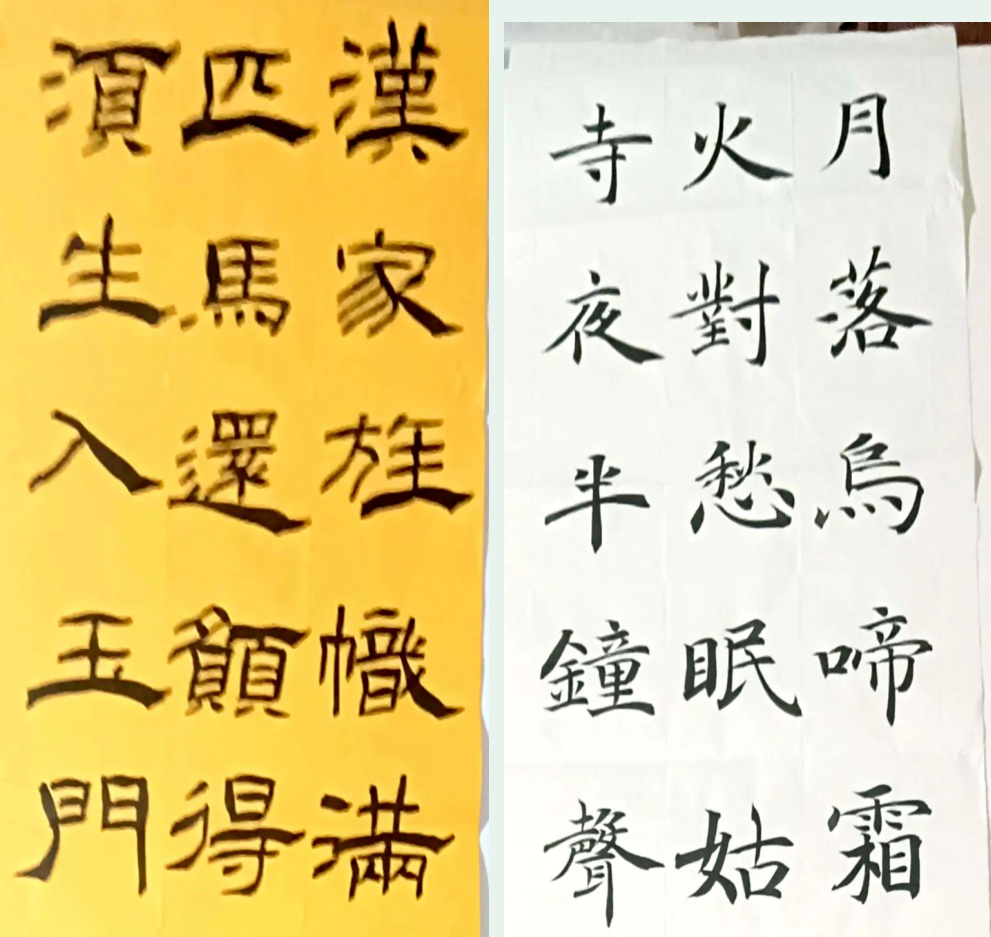 漢家旌幟滿
匹馬還願得
須生入玉門
月落烏啼霜
火對愁眠姑
寺夜半鐘聲